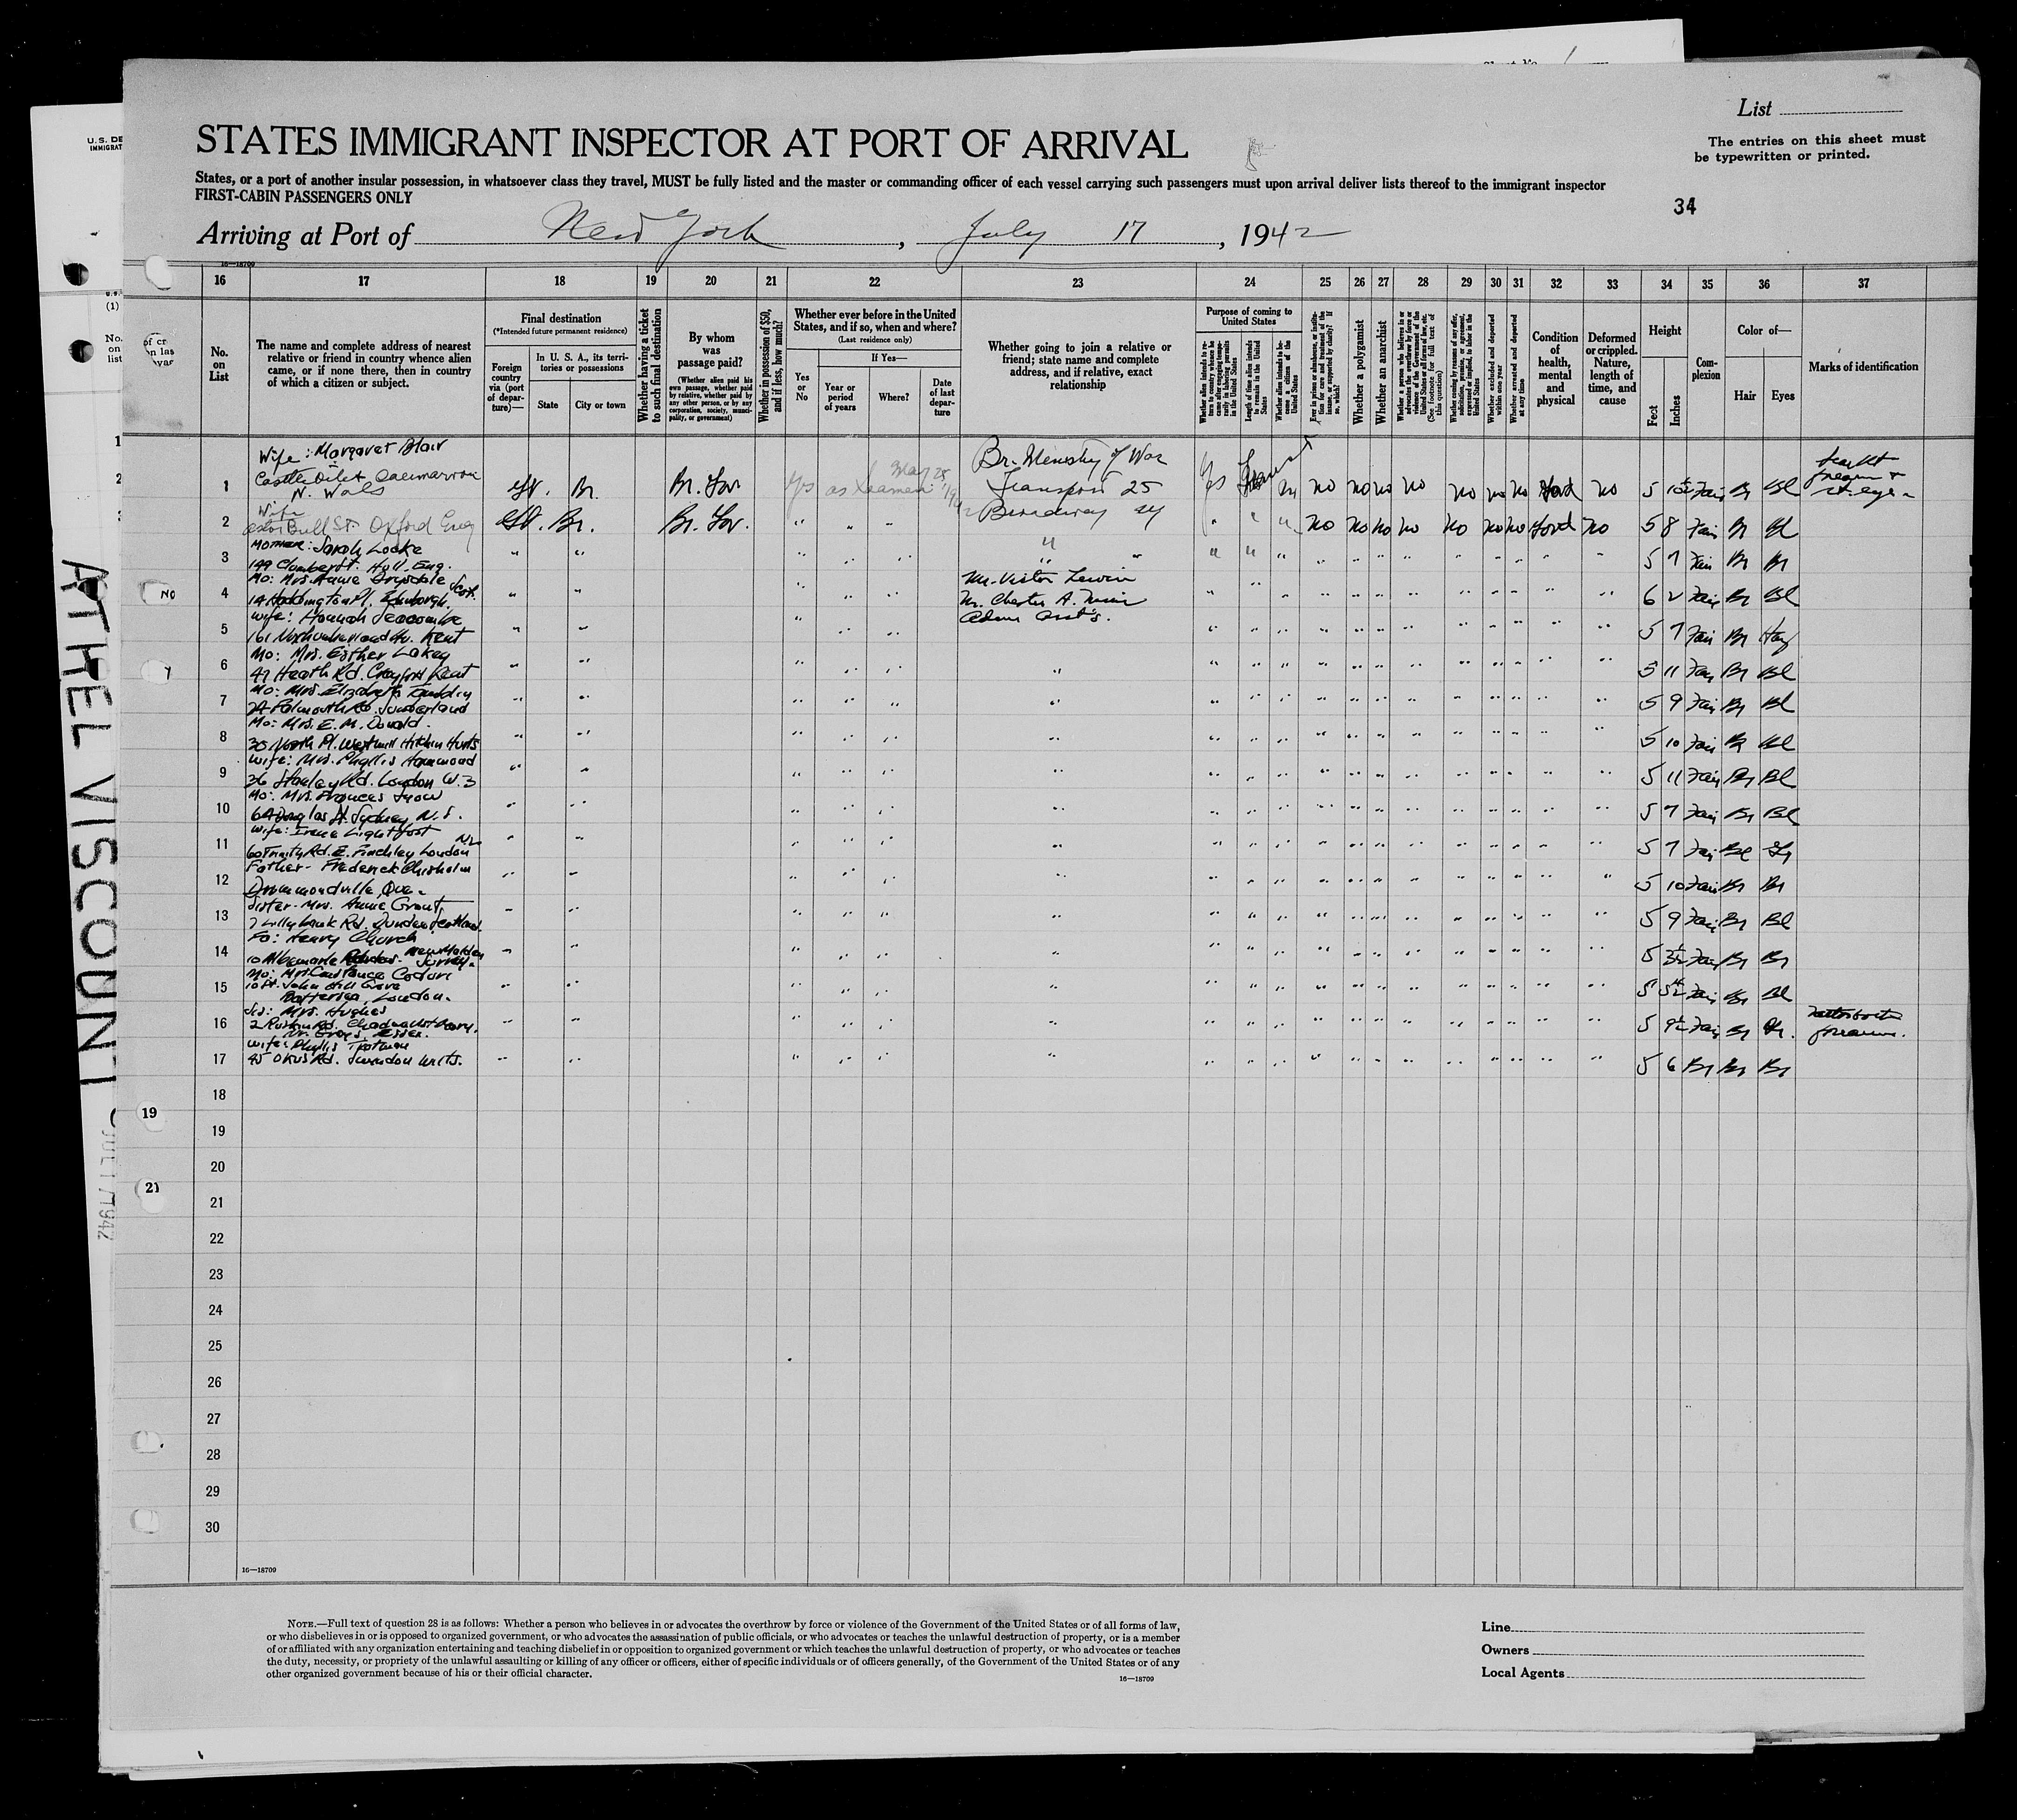 List
The entries on this sheet must
be typewritten or printed.
U. S. DE
IMMIGRAT
STATES IMMIGRANT INSPECTOR AT PORT OF ARRIVAL
States, or a port of another insular possession, in whatsoever class they travel, MUST be fully listed and the master or commanding officer of each vessel carrying such passengers must upon arrival deliver lists thereof to the immigrant inspector
FIRST-CABIN PASSENGERS ONLY
34
Arriving at Port of New York, July 17, 1942
16—18709
16 17 18 19 20 21 22 23 24 25 26 27 28 29 30 31 32 33 34 35 36 37
No. on List
The name and complete address of nearest relative or friend in country whence alien came, or if none there, then in country of which a citizen or subject.
Final destination
(*Intended future permanent residence)
Foreign country via (port of departure)—
In U. S. A., its territories or possessions
State
City or town
Whether having a ticket to such final destination
By whom was passage paid?
(Whether alien paid his own passage, whether paid by relative, whether paid by any other person, or by any corporation, society, municipality, or government)
Whether in possession of $50, and if less, how much?
Whether ever before in the United States, and if so, when and where?
(Last residence only)
Yes or No
If Yes—
Year or period of years
Where?
Date of last departure
Whether going to join a relative or friend; state name and complete address, and if relative, exact relationship
Purpose of coming to United States
Whether alien intends to return to country whence he came after engaging temporarily in laboring pursuits in the United States
Length of time alien intends to remain in the United States
Whether alien intends to become a citizen of the United States
Ever in prison or almshouse, or institution for care and treatment of the insane, or supported by charity? If so, which?
Whether a polygamist
Whether an anarchist
Whether a person who believes in or advocates the overthrow by force or violence of the Government of the United States or all forms of law, etc. (See footnote for full text of this question)
Whether coming by reason of any offer, solicitation, promise, or agreement, expressed or implied, to labor in the United States
Whether excluded and deported within one year
Whether arrested and deported at any time
Condition of health, mental and physical
Deformed or crippled. Nature, length of time, and cause
Height
Feet
Inches
Complexion
Color of—
Hair
Eyes
Marks of identification
Wife: Margaret Blair
1 N. Wales Br. Br. Gov Yes as Seaman May 25 1942 Br. Ministry of War Transport 25 Yes no no no no no no no Good no 5 10½ Fair Br Bl
Wife
2 Bull St. Oxford Eng Br. Br. Gov. " " " Broadway NY " " " no no no no no no no Good no 5 8 Fair Br Bl
Mother: Sarah Locke
3 199 Clumber St. Hull, Eng. 5 7 Fair Br Br
Mo: Mrs. Annie Drysdale
4 14 Haddington Pl. Edinburgh. Scot. Mr. Victor Lewin 6 2 Fair Br Bl
Mr. Chester A.
Wife: Hannah Seacombe
5 161 Northumberland Av. Kent 5 7 Fair Br Haz
Mo: Mrs. Esther Lakey
6 47 Heath Rd. Crayford Kent 5 11 Fair Br Bl
Mo: Mrs. Elizabeth
7 24 Falmouth Rd. Sunderland 5 9 Fair Br Bl
Mo: Mrs. E. M. Donald.
8 30 North Pl. Westmill Hitchin Hurts 5 10 Fair Br Bl
Wife: Mrs. Phyllis Hammond
9 36 Stanley Rd. London W.3 5 11 Fair Br Bl
Mo: Mrs. Frances
10 64 Douglas St. Sydney N.S. 5 7 Fair Br Bl
Wife: Irene Lightfoot
11 60 Trinity Rd. E. Finchley London N.2 5 7 Fair Bl Gr
Father- Frederick Chisholm
12 Drummondville, Que. 5 10 Fair Br Br
Sister- Mrs. Annie Grant,
13 7 Lillybank Rd. Dundee Scotland. 5 9 Fair Br Bl
Fa: Henry Church
14 10 Albemarle New Malden Surrey. 5 Fair Br Br
Mo: Mrs. Constance
15 10 St. John Hill Grove
Battersea, London. 5 5½ Fair Br Bl
Sis: Mrs. Hughes
16 2 Ruskin Rd. Chadwell St Mary,
Nr. Grays Essex. 5 9½ Fair Br forearm.
Wife: Phyllis Trotman
17 45 Okus Rd. Swindon Wilts. 5 6 Br Br Br
18
19
20
21
22
23
24
25
26
27
28
29
30
16—18709
ATHEL VISCOUNT
JUL 17 1942
19
21
NOTE.—Full text of question 28 is as follows: Whether a person who believes in or advocates the overthrow by force or violence of the Government of the United States or of all forms of law,
or who disbelieves in or is opposed to organized government, or who advocates the assassination of public officials, or who advocates or teaches the unlawful destruction of property, or is a member
of or affiliated with any organization entertaining and teaching disbelief in or opposition to organized government or which teaches the unlawful destruction of property, or who advocates or teaches
the duty, necessity, or propriety of the unlawful assaulting or killing of any officer or officers, either of specific individuals or of officers generally, of the Government of the United States or of any
other organized government because of his or their official character.
16—18709
Line
Owners
Local Agents